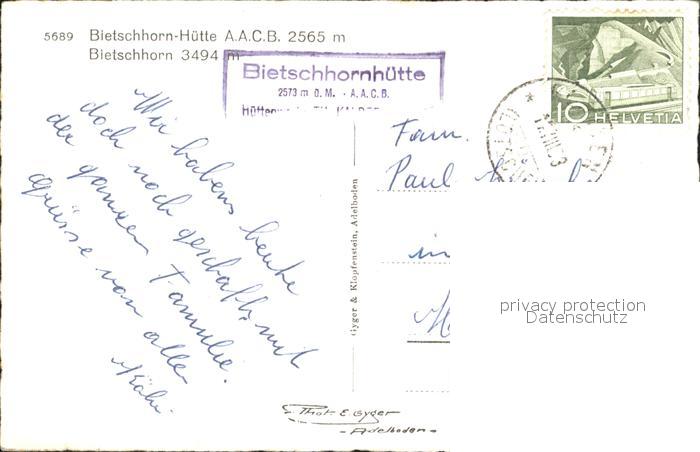 5689 Bietschhorn-Hütte A.A.C.B. 2565 m
Bietschhorn 3494 m
Bietschhornhütte
2573 m ü. M. - A.A.C.B.
10 HELVETIA
Wir habens heute
doch noch geschafft mit
der ganzen Familie.
grüsse von allen
Fam.
Paul
in
Gyger & Klopfenstein, Adelboden
Phot. E. Gyger
- Adelboden -
privacy protection
Datenschutz